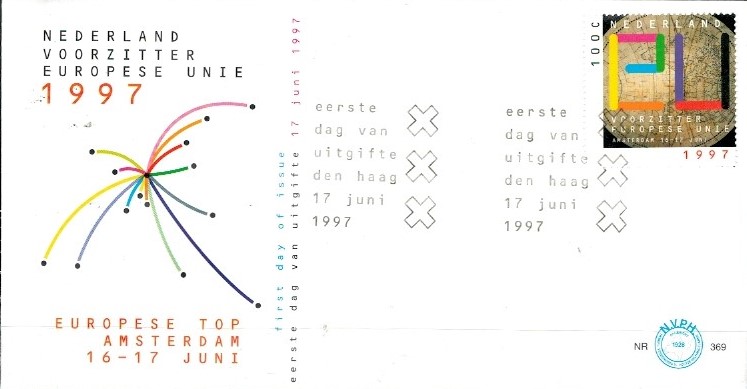 NEDERLAND
VOORZITTER
EUROPESE UNIE
1997
EUROPESE TOP
AMSTERDAM
16-17 JUNI
first day of issue
eerste dag van uitgifte 17 juni 1997
eerste
dag van
uitgifte
den haag
17 juni
1997
eerste
dag van
uitgifte
den haag
17 juni
1997
100c
NEDERLAND
EU
VOORZITTER
EUROPESE UNIE
AMSTERDAM 16-17
1997
N.V.P.H.
1928
NR 369